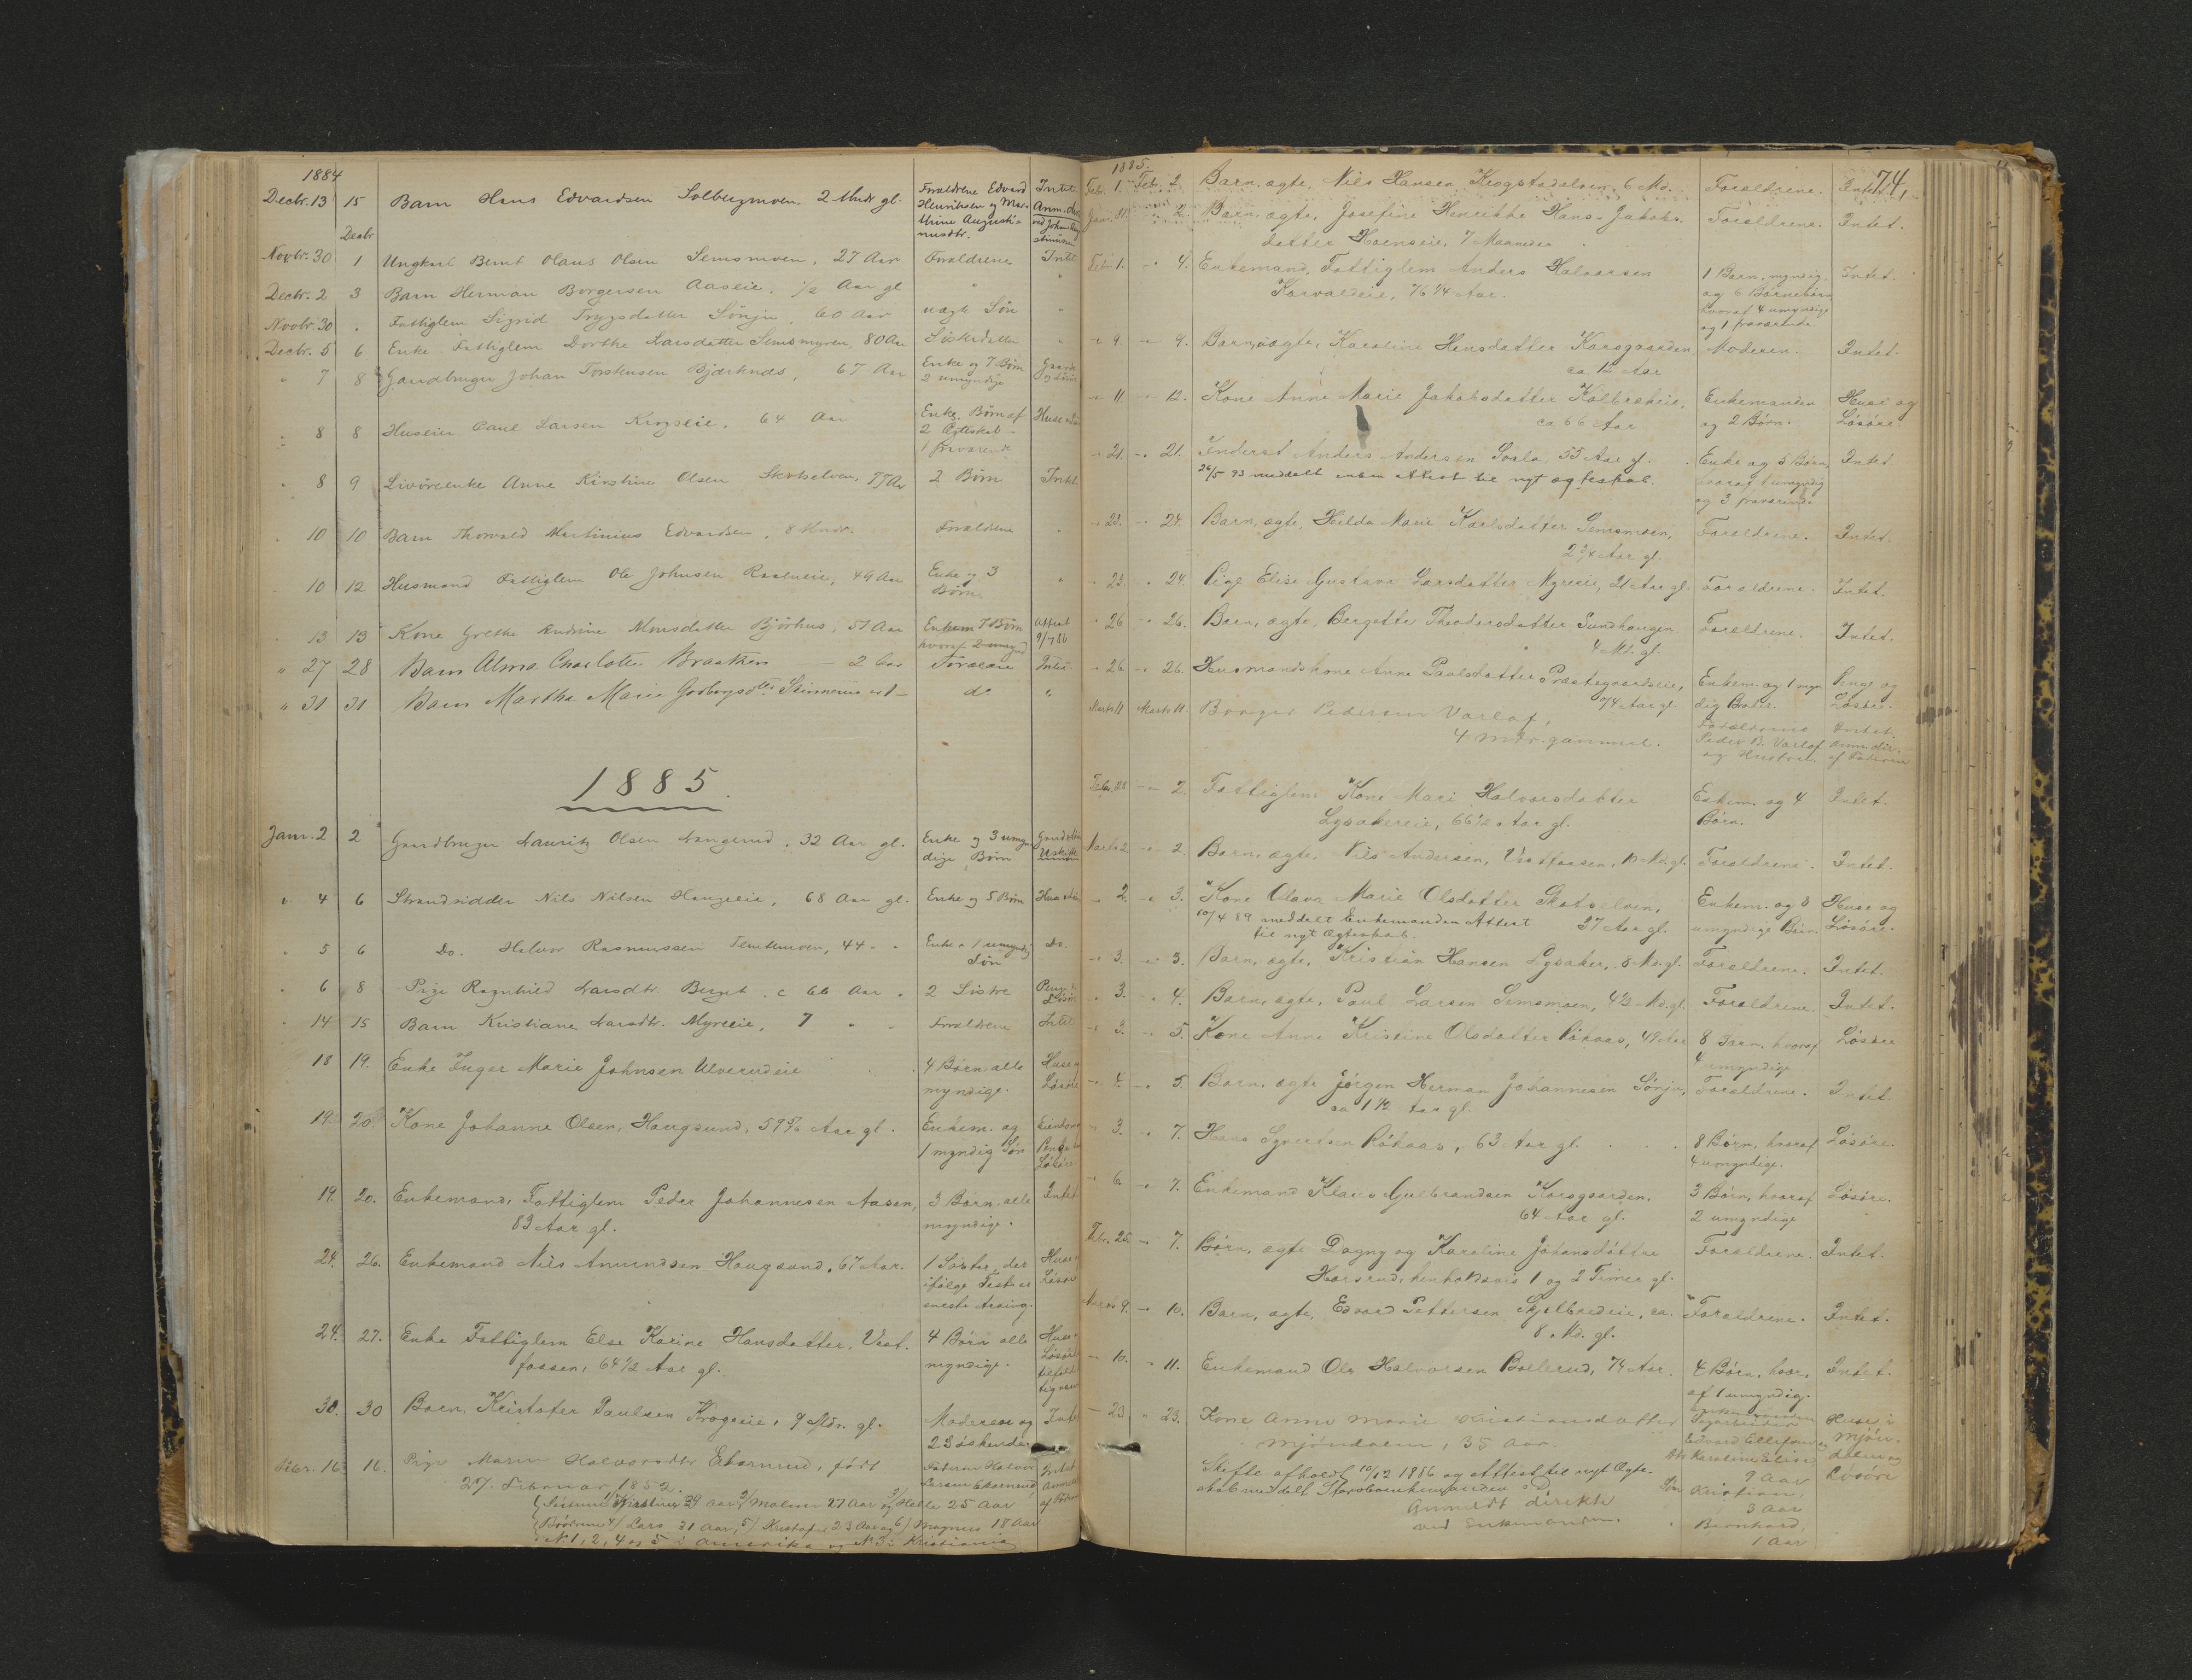 1884
Decbr. 13 15 Barn Hans Edvardsen Solbergmoen 2 Mndr gl. Forældrene Edvard Intet
Henriksen og Mar-
thine Augusti-
nusdtr.
Decbr
Novbr. 30 1 Ungkarl Bernt Olaus Olsen Semsmoen, 27 Aar Forældrene Intet
Decbr. 2 3 Barn Herman Borgersen Aaseie, 1/2 Aar gl "
Novbr. 30 " Fattiglem Sigrid Trygsdatter Sønju, 60 Aar uægte Søn "
Decbr. 5 6 Enke Fattiglem Dorthe Larsdatter Semsmyren, 80 Aar Søsterdatter "
" 7 8 Gaardbruger Johan Torstensen Bjørknæs, 67 Aar Enke og 7 Børn
2 umyndige
" 8 8 Huseier Paul Larsen Krogseie, 64 Aar Enke, Børn af
2 Ægteskab
1 fraværende
" 8 9 Anne Kirstine Olsen Skotselven, 77 Aar 2 Børn Intet
" 10 10 Barn Thorvald Martinius Edvardsen, 8 Mndr. Forældrene "
10 12 Husmand Fattiglem Ole Johnsen 49 Aar Enke og 3 "
Børn
" 13 13 Kone Grethe Andrine Monsdatter Bjørhus, 51 Aar Enkem 7 Børn Attest
hvoraf 2 umynd 9/7 86
" 27 28 Barn Alma Charlotte Braathen - 2 Aar Intet
" 31 31 Barn Martha Marie do "
1885.
Janr. 2 2 Gaardbruger Lauritz Olsen Langerud, 32 Aar gl. Enke og 3 umyn-
dige Børn
" 4 6 Strandsidder Nils Nilsen Haugeeie, 68 Aar gl. Enke og 5 Børn
" 5 6 Do. Halvor Rasmussen 44 " " Enke " 1 umyndig Do.
Søn
" 6 8 Pige Ragnhild Larsdtr. Berget c 66 Aar " 2 Søstre
" 14 15 Barn Kristiane Larsdtr. Myreeie, 7 " " Forældrene Intet
18 19. Enke Inger Marie Johnsen Ulverudeie 4 Børn alle Huse og
myndige. Løsøre
19. 20. Kone Johanne Olsen, Haugsund, 59 5/6 Aar gl. Enkem. og
1 myndig Søn
Løsøre
19. 20. Enkemand, Fattiglem Peder Johannesen Aasen, 3 Børn, alle Intet
83 Aar gl. myndige.
24. 26. Enkemand Nils Amundsen Haugsund, 67 Aar. 1 Søster, der Huse og
ifølge Test. er Løsøre
eneste Arving.
24. 27. Enke Fattiglem Else Karine Hansdatter, Vest- 4 Børn alle
fossen, 64 1/2 Aar gl. myndige.
30. 30 Barn, Kristofer Paulsen Krogeie, 9 Mdr. gl. Moderen og Intet
2 Søskende.
Febr. 16 16. Pige Maren Halvorsdtr Ekornrud, født Faderen Halvor Intet
27. Februar 1852. Larsen Ekornrud
Kirstine 29 Aar, 2/ Malene 27 Aar og 3/ Helle 25 Aar
Brødrene 4/ Lars 31 Aar, 5/ Kristofer 23 Aar og 6/ Magnus 18 Aar
N. 1, 2, 4 og 5 i Amerika og N 3 i Kristiania
74,
1885.
Febr. 1. Feb. 2. Barn, ægte, Nils Hansen Krogstadelven, 6 Md. Forældrene. Intet.
Janr. 31. " 2. Barn, ægte, Josefine Henrikke Hans-Jakobs- Forældrene. Intet.
datter Hoenseie, 7 Maaneder
Febr. 1. " 4. Enkemand, Fattiglem Anders Halvorsen 1 Barn, myndig. Intet.
Korvaldeie, 76 1/4 Aar. og 6 Børnebørn
hvoraf 4 umyndige
og 1 fraværende
" 9. " 9. Barn, uægte, Karoline Hansdatter Korsgaarden Moderen. Intet.
ca. 12 Aar
" 11. " 12. Kone Anne Marie Jakobsdatter Kolbrekeie, Enkemanden Huse og
ca 66 Aar og 2 Børn. Løsøre.
" 21. " 21. Inderst Anders Andersen Sorla, 55 Aar gl. Enke og 5 Børn, Intet.
26/5 93 meddelt enken attest til nyt ægteskab. hvoraf 1 umyndig
og 3 fraværende
" 23. " 24. Barn, ægte, Hilda Marie Karlsdatter Semsmoen, Forældrene. Intet.
2 3/4 Aar gl.
" 23. " 24. Pige Elise Gustava Larsdatter Myreeie, 21 Aar gl. Forældrene. Intet.
" 26 " 26. Barn, ægte, Bergette Theodorsdatter Sundhaugen Forældrene. Intet.
4 Md. gl.
" 26. " 26. Husmandskone Anne Paulsdatter Præstegaardseie, Enkem. og 1 myn- Penge og
74 Aar gl. dig Datter. Løsøre.
Marts 11 Marts 11. Borger Pedersen Varlof, Forældrene Intet.
4 Mdr. gammel. Peder B. Varlof anm. dir.
og Hustru. af Faderen
Febr. 28 " 2. Fattiglem Kone Mari Halvorsdatter Enkem. og 4 Intet.
Lysakereie, 66 1/2 Aar gl. Børn.
Marts 2 " 2. Barn, ægte, Nils Andersen, Vestfossen, 10 Md. gl. Forældrene. Intet.
" 2. " 3. Kone Olava Marie Olsdatter Skotselven, Enkem. og 3 Huse og
10/4 89 meddelt Enkemanden Attest 37 Aar gl. umyndige Børn. Løsøre.
til nyt Ægteskab.
" 3. " 3. Barn, ægte, Kristian Hansen Lysaker, 8 Md. gl. Forældrene. Intet.
" 3. " 4. Barn, ægte, Paul Larsen Semsmoen, 4 1/2 Md. gl. Forældrene. Intet.
" 3. " 5. Kone Anne Kristine Olsdatter Råkaas, 49 Aar 8 Børn, hvoraf Løsøre
4 umyndige
" 4. " 5. Barn, ægte Jörgen Herman Johannesen Sønju, Forældrene. Intet.
ca 1 1/2 Aar gl.
" 3. " 7. Hans Syversen Råkaas, 63 Aar gl. 8 Børn, hvoraf Løsøre.
4 umyndige.
" 6 " 7. Enkemand Klaus Gulbrandsen Korsgaarden, 3 Børn, hvoraf Løsøre.
64 Aar gl. 2 umyndige
Febr. 25. " 7. Børn, ægte Dagny og Karoline Johansdøttre Forældrene. Intet.
Horsrud, henholdsvis 1 og 2 Timer gl.
Marts 9. " 10. Barn, ægte, Edvard Pettersen Skjelbredeie, ca. Forældrene. Intet.
8 Md. gl.
" 10. " 11. Enkemand Ole Halvorsen Bollerud, 74 Aar. 4 Børn, hvor- Intet.
af 1 umyndig.
" 23 " 23. Kone Anne Marie Kristiansdatter Enkemanden Huse i
Mjøndalen, 35 Aar Edvard Ellefsen og Mjøn-
Skifte afholdt 10/12 1886 og Attest til nyt Ægte- Dtr Karoline Elise dalen og
skab meddelt Størsboenkemanden s.D. 9 Aar Løsøre
Anmeldt direkte Søn Kristian,
ved Enkemanden. 3 Aar
Bernhard,
1 Aar